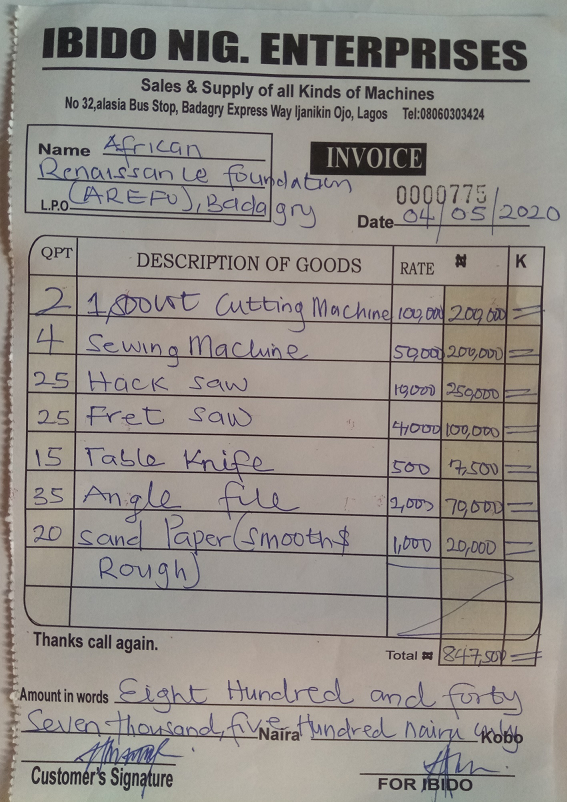 IBIDO NIG. ENTERPRISES
Sales & Supply of all Kinds of Machines
No 32,alasia Bus Stop, Badagry Express Way Ijanikin Ojo, Lagos Tel:08060303424
Name African
Renaissance foundation
(AREFO), Badagry
L.P.O
INVOICE
0000775
Date 04/05/2020
QPT DESCRIPTION OF GOODS RATE ₦ K
2 1,500wt Cutting Machine 100,000 200,000 =
4 Sewing Machine 50,000 200,000 =
25 Hack saw 10,000 250,000 =
25 Fret saw 4,000 100,000 =
15 Table Knife 500 7,500 =
35 Angle file 2,000 70,000 =
20 sand Paper (smooth $ 1,000 20,000 =
Rough)
Thanks call again.
Total ₦ 847,500 =
Amount in words Eight Hundred and forty
Seven thousand, five Hundred naira only
Naira Kobo
Customer's Signature
FOR IBIDO